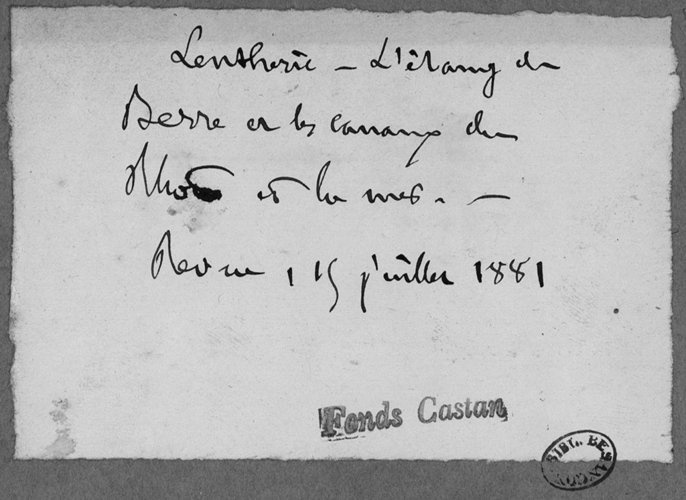 Lentheric — L'étang de
Berre et les canaux du
Rhône et la mer. —
Revue, 15 juillet 1881
Fonds Castan
BIBL. BESANÇON